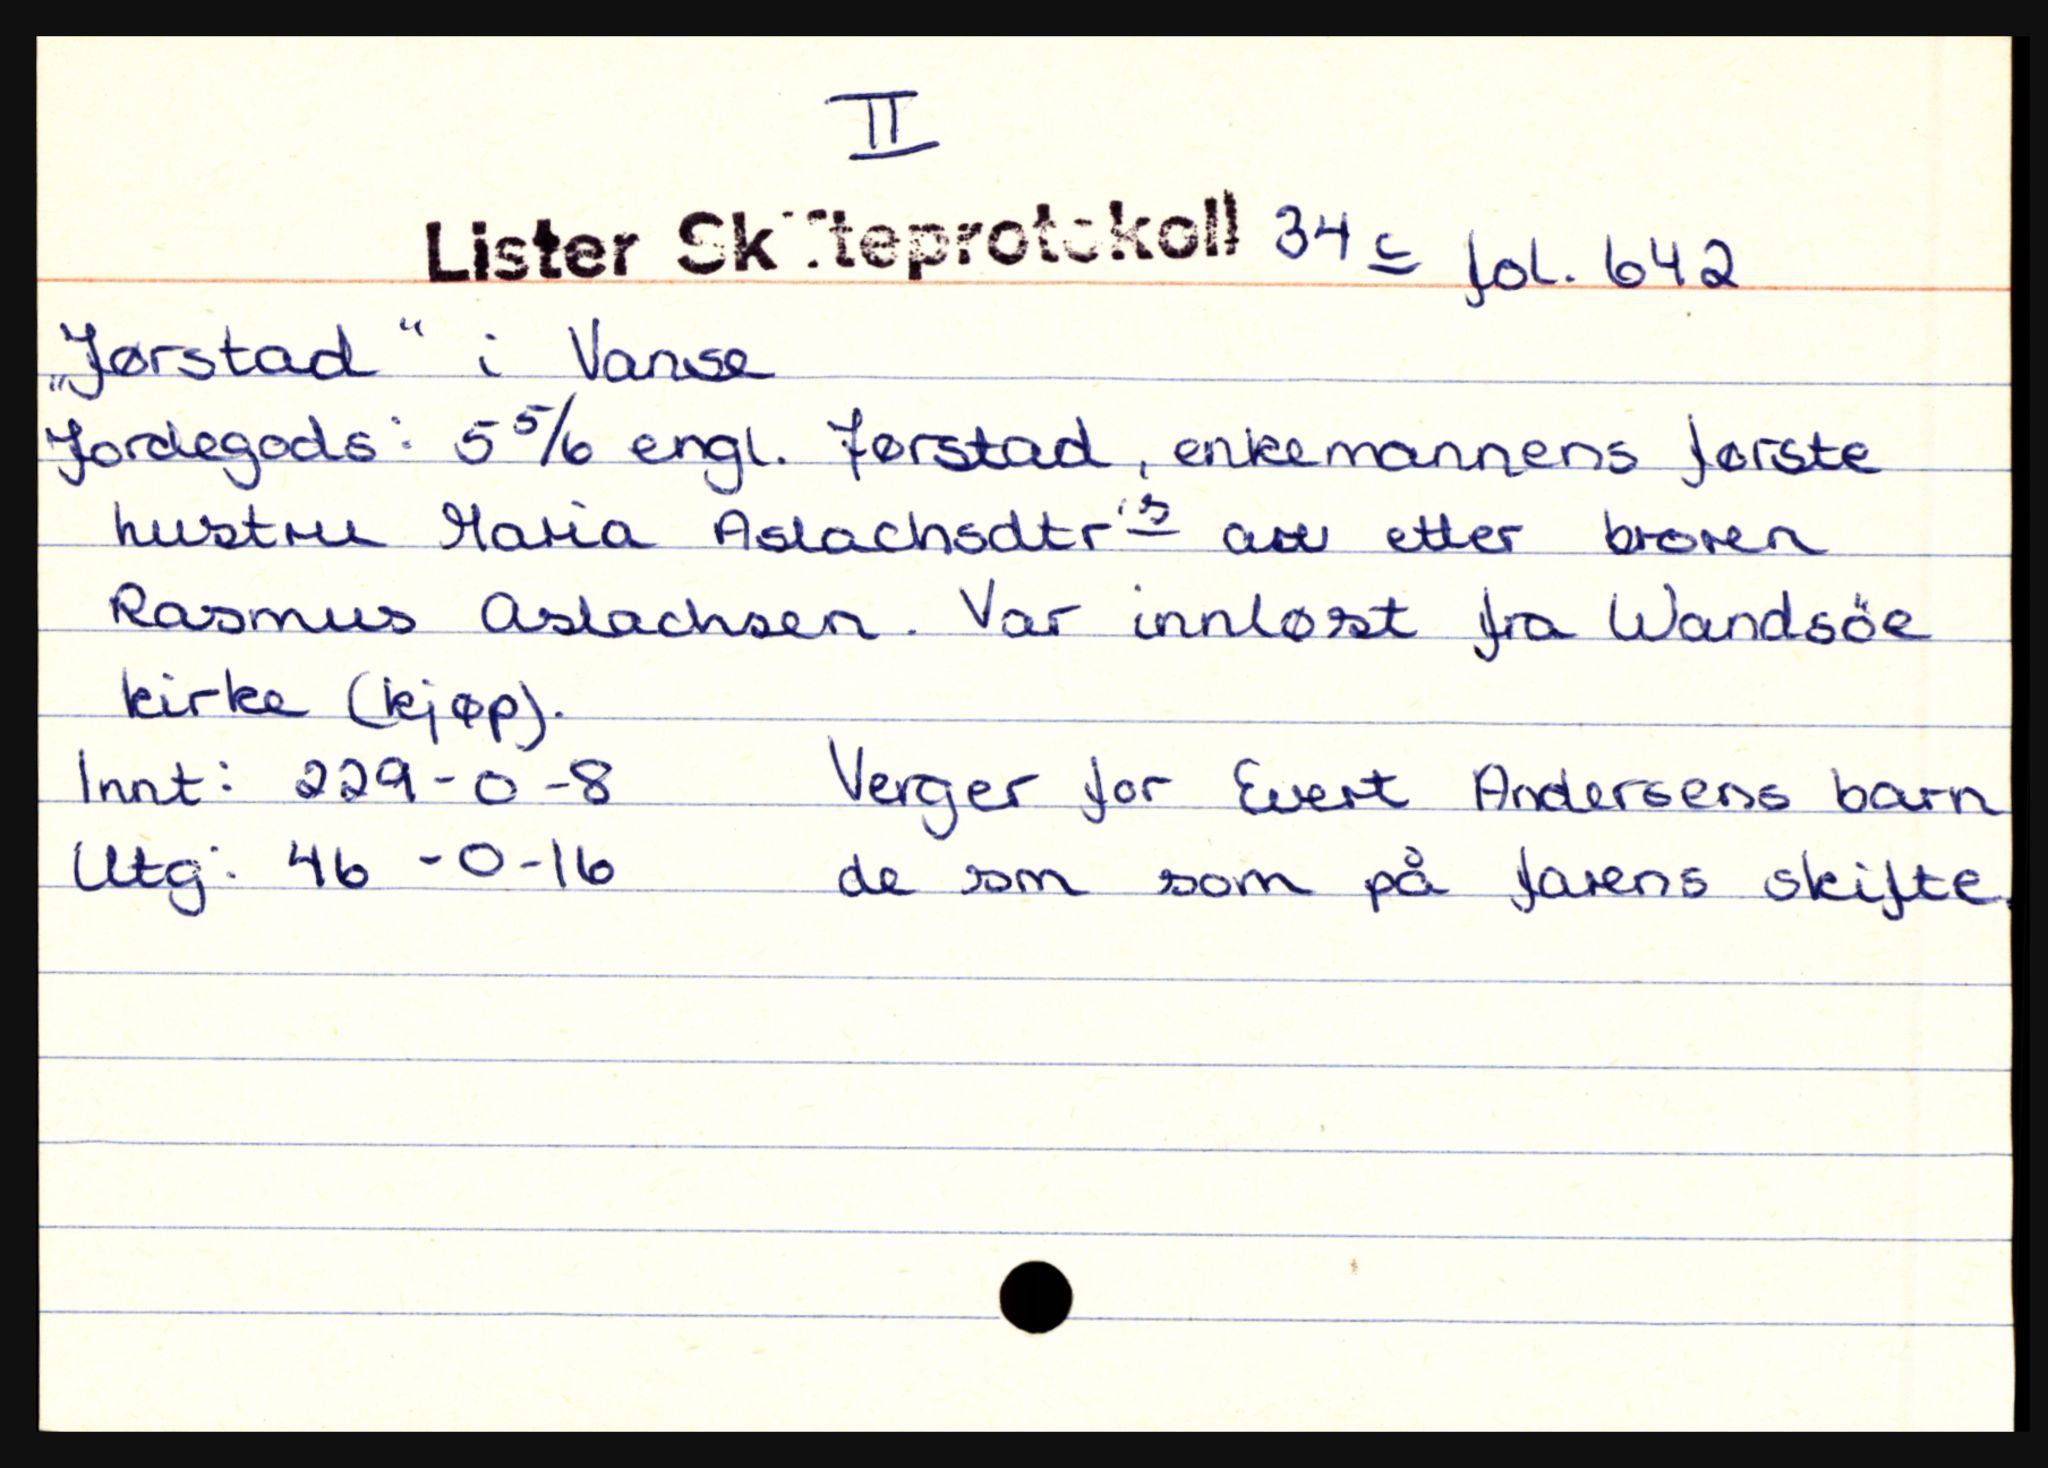 II
Lister Skifteprotokoll 34 c fol. 642
„Jørstad“ i Vanse
Jordegods: 5 5/6 engl. Jørstad, enkemannens første
hustru Maria Aslachsdtr's arv etter broren
Rasmus Aslachsen. Var innløst fra Wandsöe
kirke (kjøp).
Innt: 229-0-8 Verger for Evert Andersens barn
Utg: 46-0-16 de sm som på farens skifte.